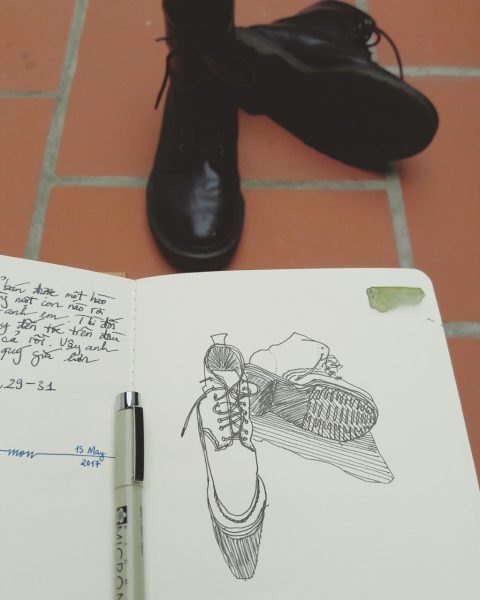 bán được một hào
một con nào rơi
anh em. Thì đối
đến tóc trên đầu
cả rồi. Vậy anh
quý giá hơn
, 29-31
mon 15 May
2017
MICRON